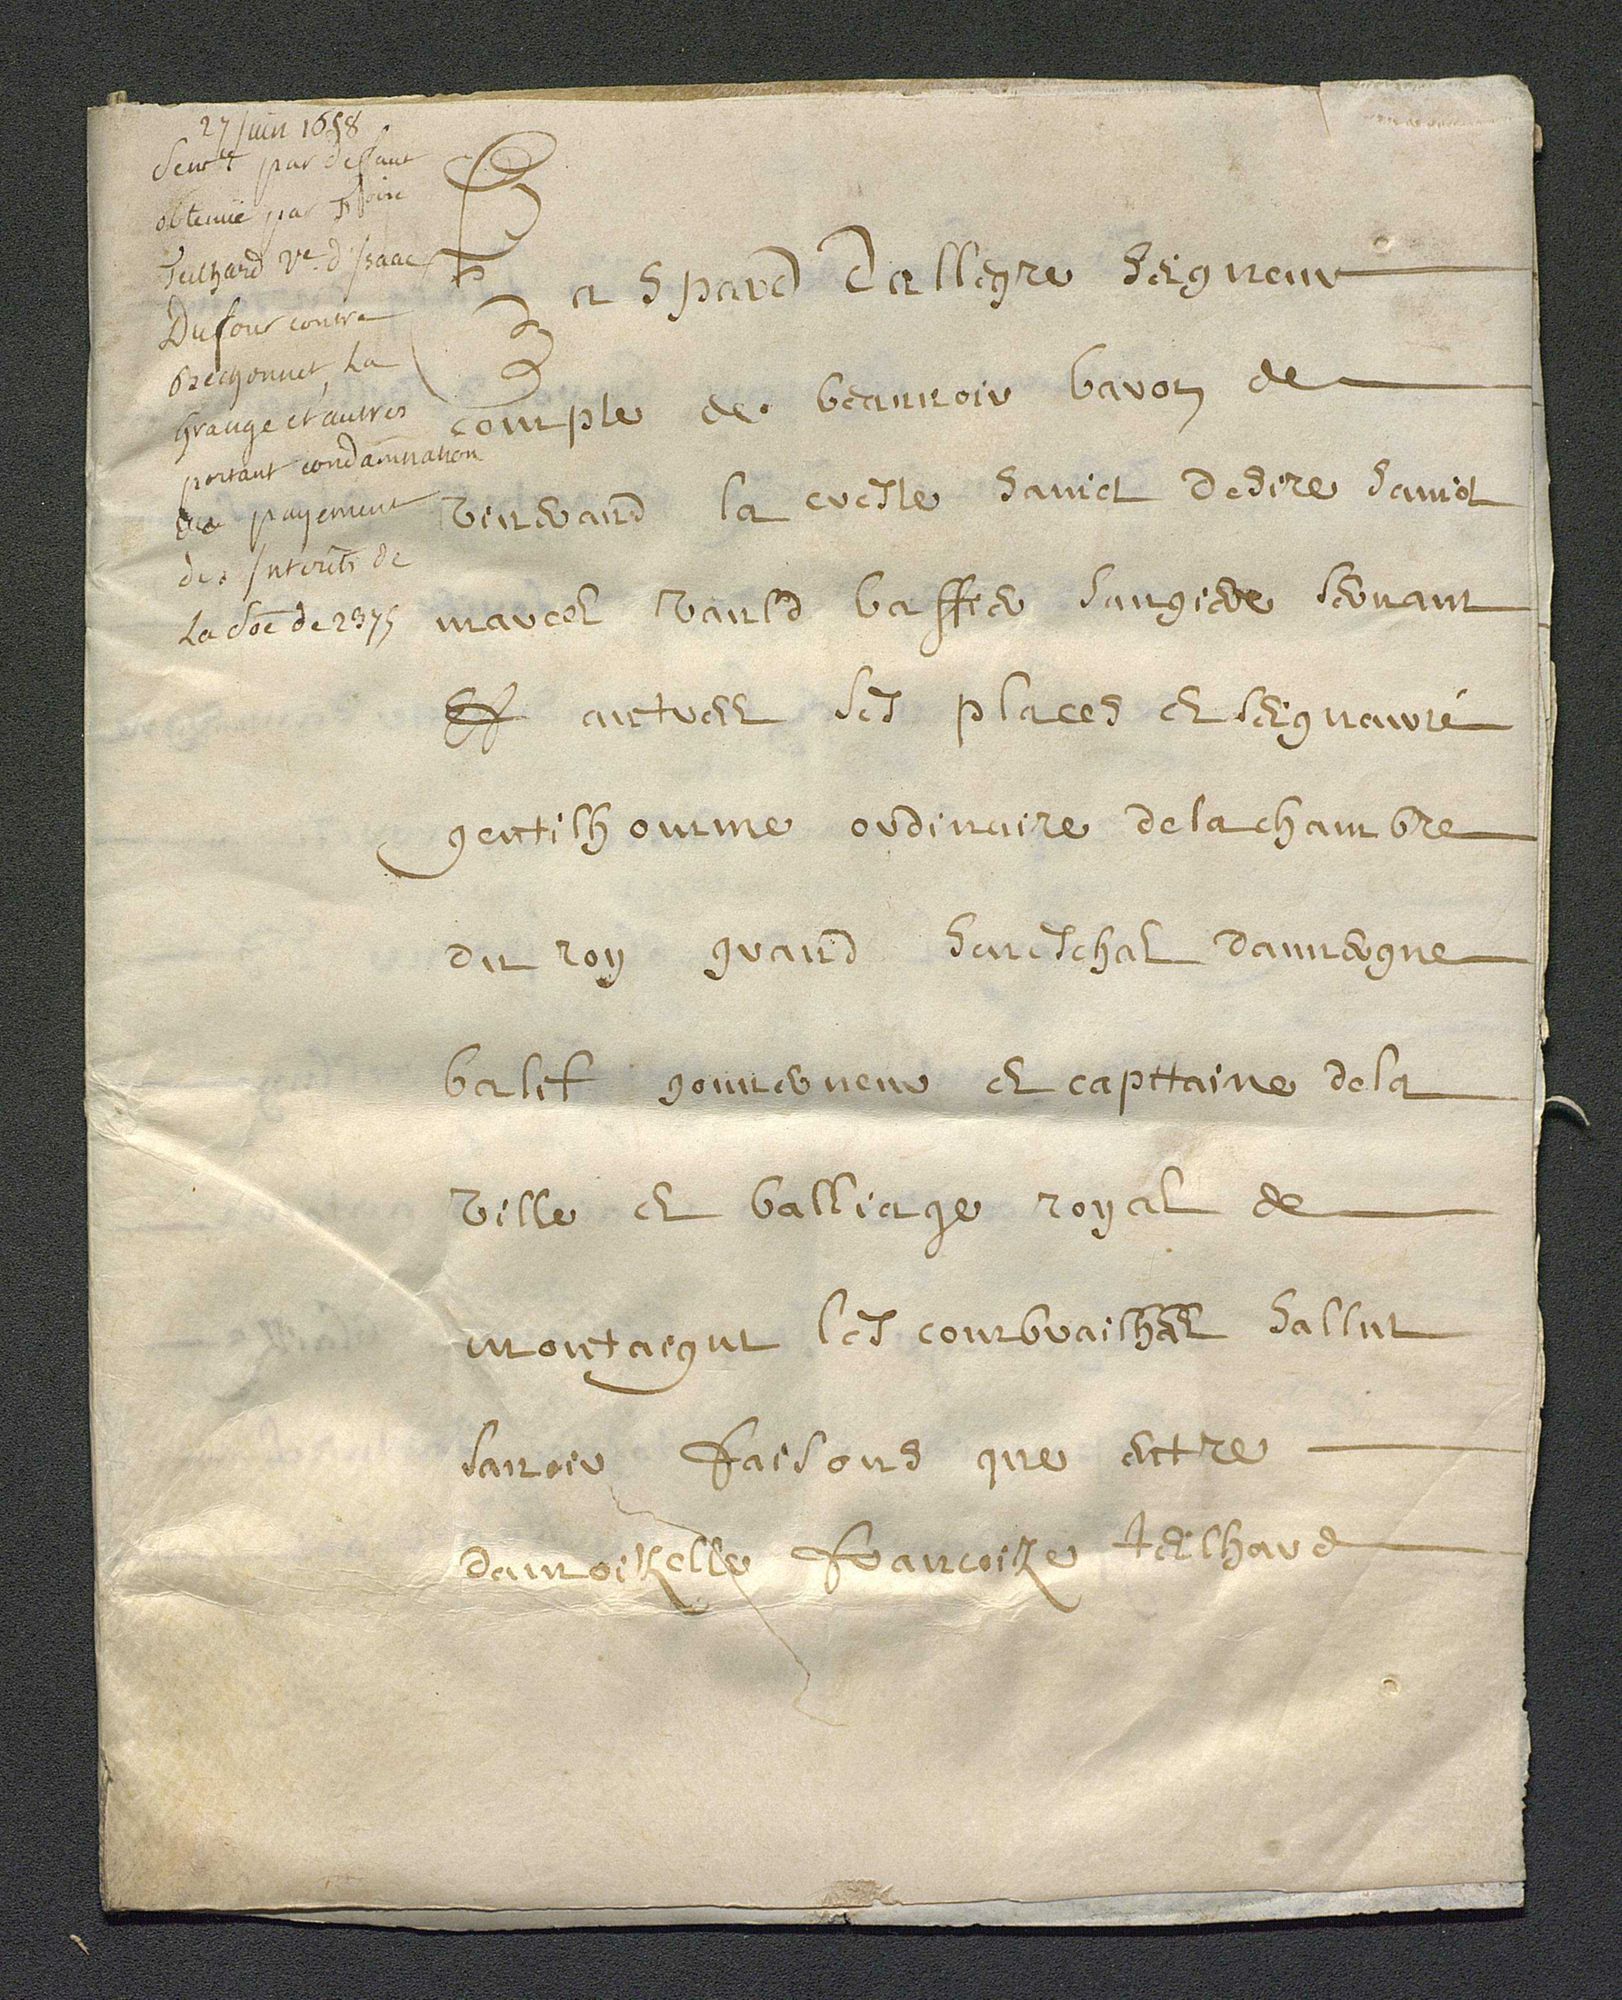 27 Juin 1658
Sentce par deffaut
obtenüe par Froise
Teilhard Ve. d'Isaac
Dufour contre
Brechonnet, La
Grange et autres
portant condamnation
du payement
des Interêts de
La Soe de 2375
Gaspard Dallegre Seigneur
compte de beauvoir baron de
viverard la creste sainct desire sainct
marcel baffier saugiere servant
Et autres ses places et seigneurie
gentilhomme ordinaire de la chambre
du roy grand seneschal dauvergne
balif gouverneur et capittaine de la
ville et balliage royal de
montaigut les combrailhes sallut
savoir faisons que entre
damoiselle francoise teilhard